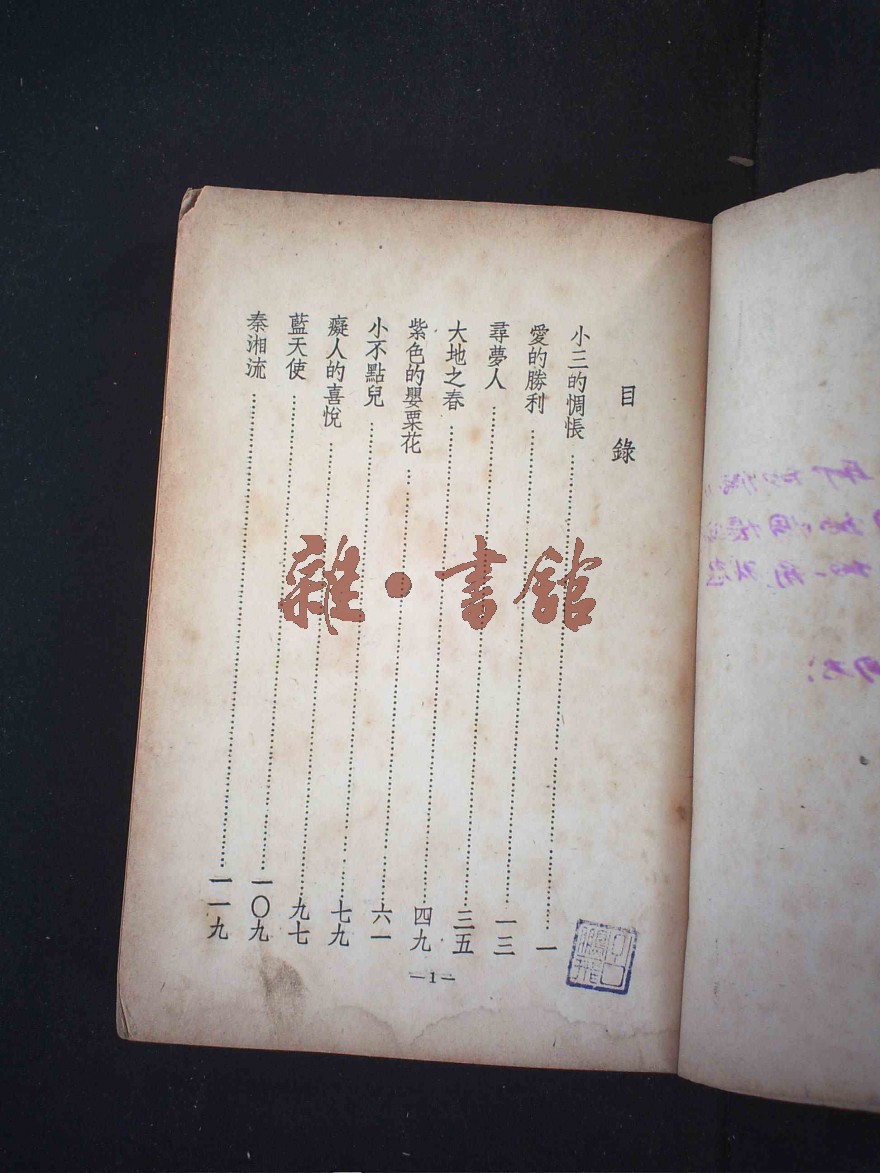 目錄
小三的惆悵……一
愛的勝利……一三
尋夢人……三五
大地之春……四九
紫色的嬰粟花……六一
小不點兒……七九
癡人的喜悅……九七
藍天使……一〇九
秦湘流……一一九
—1—
雜·書館